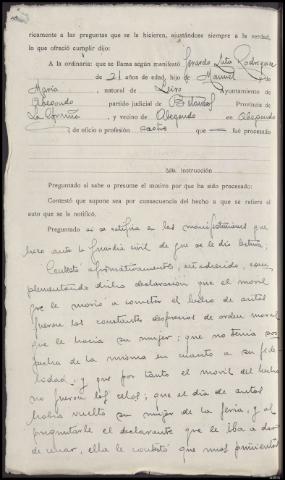 ricamente a las preguntas que se la hicieren, ajustándose siempre a la verdad,
lo que ofreció cumplir dijo:
A la ordinaria: que se llama según manifestó Gerardo Rodriguez
de 21 años de edad, hijo de Manuel y de
María, natural de Leiro Ayuntamiento de
Abegondo partido judicial de Betanzos Provincia de
La Coruña, y vecino de Abegondo en Abegondo
de oficio o profesión que — fué procesado
instrucción
Preguntado si sabe o presume el motivo por que ha sido procesado:
Contestó que supone sea por consecuencia del hecho a que se refiere el
auto que se le notificó.
Preguntado si se ratifica en las manifestaciones que
hizo ante la Guardia civil de que se le dió lectura;
Contestó afirmativamente, com-
plementando dicha declaración que el movil
que le movió a cometer el hecho de autos
fueron los constantes desprecios de orden moral
que le hacia su mujer; que no tenia sos-
pecha de la misma en cuanto a su fide-
lidad y que por tanto el movil del hecho
no fueron los celos; que el dia de autos
habia vuelto su mujer de la feria, y al
preguntarle el declarante que le iba a dar
de cenar, ella le contestó que unos pimientos